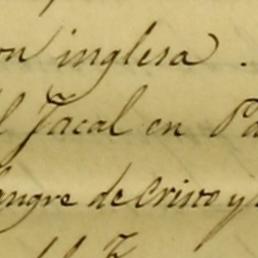 on inglesa.
l Jacal en Pa
Sangre de Cristo y